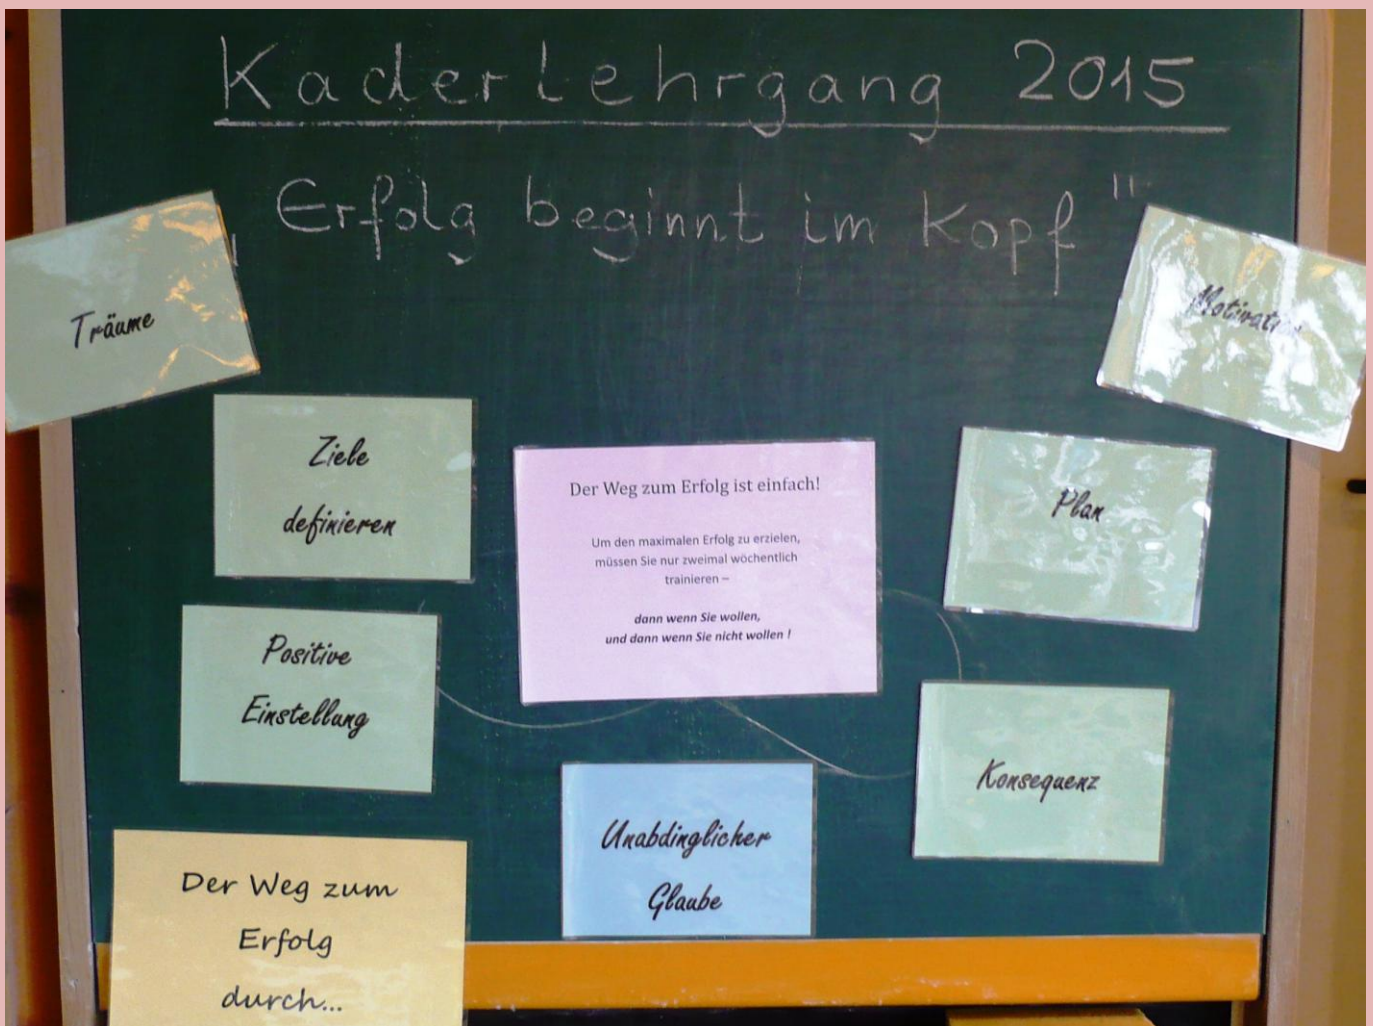 Kaderlehrgang 2015
Erfolg beginnt im Kopf"
Träume
Motivation
Ziele
definieren
Der Weg zum Erfolg ist einfach!
Um den maximalen Erfolg zu erzielen,
müssen Sie nur zweimal wöchentlich
trainieren –
dann wenn Sie wollen,
und dann wenn Sie nicht wollen !
Plan
Positive
Einstellung
Konsequenz
Unabdinglicher
Glaube
Der Weg zum
Erfolg
durch...